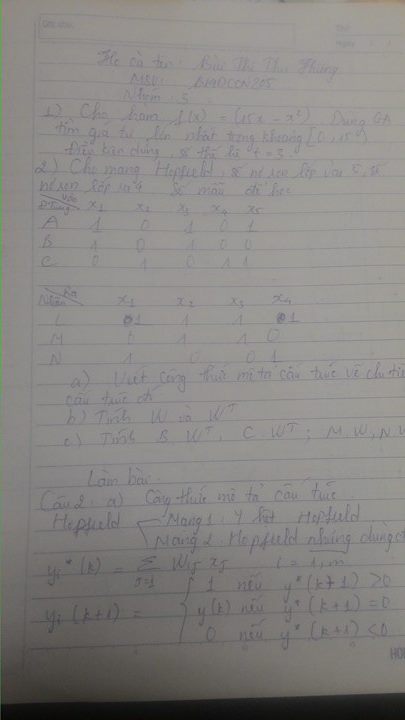 Họ và tên: Bùi Thị Thu Phương
MSV: B14DCCN205
Nhóm: 5
1) Cho hàm f(x) = (15x - x²). Dùng GA
tìm giá trị lớn nhất trong khoảng [0, 15]
Điều kiện dừng, số thế hệ t = 3.
2) Cho mạng Hopfield, số nơ ron lớp vào 5, số
nơ ron lớp ra 4 Số mẫu để học
Vào
x1 x2 x3 x4 x5
A 1 0 1 0 1
B 1 0 1 0 0
C 0 1 0 1 1
Nhãn Ra x1 x2 x3 x4
L 1 1 1 1
M 0 1 1 0
N 1 0 0 1
a) Viết công thức mô tả cấu trúc vẽ chi tiết
cấu trúc đó
b) Tính W và W^T
c) Tính B.W^T, C.W^T; M.W, N.W
Làm bài:
Câu 2: a) Công thức mô tả cấu trúc
Hopfield Mạng 1: Hopfield
Mạng 2: Hopfield nhưng dùng
yi*(k) = Σ j=1 Wij xj i = 1,m
1 nếu y*(k+1) > 0
yi(k+1) = y(k) nếu y*(k+1) = 0
0 nếu y*(k+1) < 0